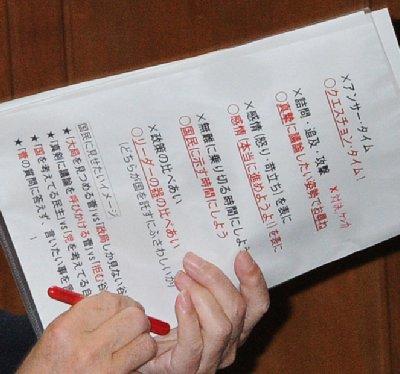 ×アンサー・タイム
○クエスチョン・タイム!
×詰問・追及・攻撃
○真摯に議論したい姿勢でお尋ね
×感情(怒り・苛立ち)を表に
○感情(本当に進めようよ!)を表に
×無難に乗り切る時間にしよ
○国民に示す時間にしよう
×政策の比べあい
○リーダーの器の比べあい
(どちらが国を託すにふさわしいか)
国民に見せたいイメージ
★「大局を見つめる菅」vs「政局しか見ない谷
★「真剣に議論を呼びかける菅」vs「拒む谷
★「国を考えてる民主」vs「党を考えてる自
★「菅の質問に答えず、言いたい事を